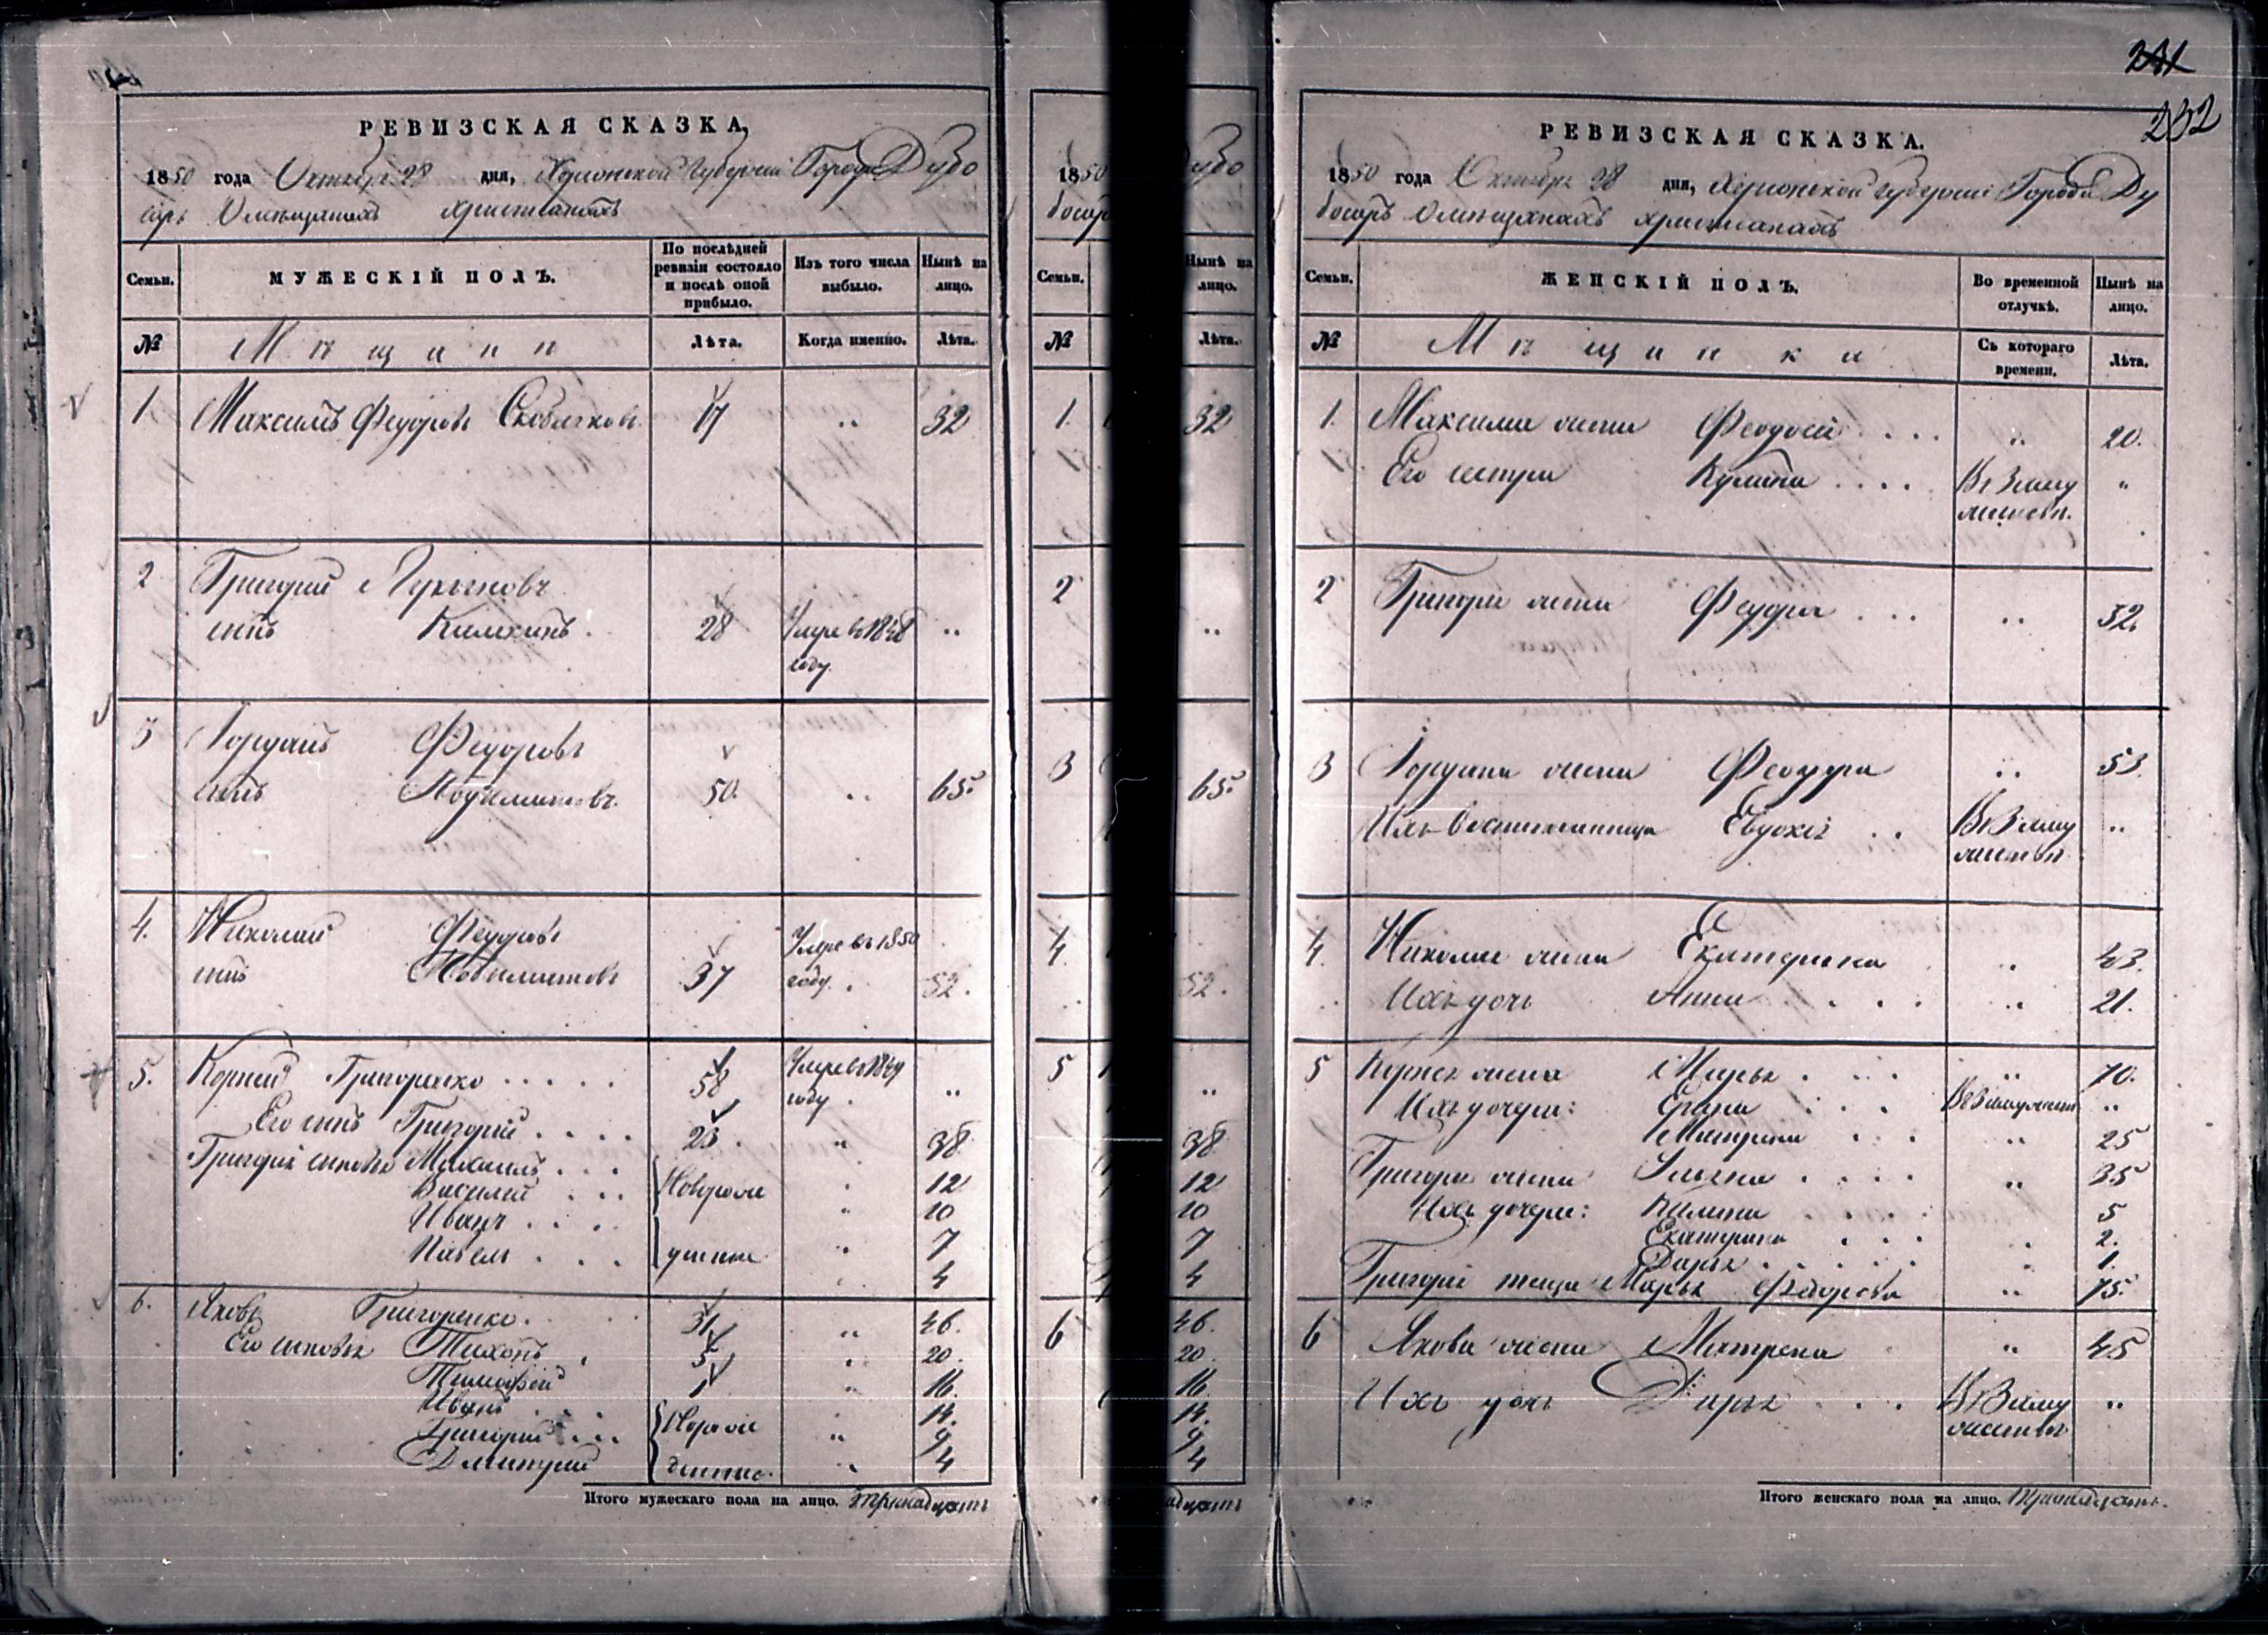 РЕВИЗСКАЯ СКАЗКА,
1850 года Октября 28 дня, Херсонской Губернии Города Дубо
саръ Омещанахъ христианахъ
Семьи.
МУЖЕСКІЙ ПОЛЪ.
По послѣдней ревизіи состояло и послѣ оной прибыло.
Изъ того числа выбыло.
Нынѣ на лицо.
№
Мѣщани
Лѣта.
Когда именно.
Лѣта.
1. Максимъ Федоровъ 17 „ 32
2 Григорий
сынъ 28 Умре въ 1848 „
году
3 Иорданъ Федоровъ
сынъ 50. „ 65.
4. Николай Федоровъ Умре въ 1850
сынъ 37 году. 52.
5. Корней Григоренко 58 Умре въ 1849 „
году
Его сынъ Григорий 23. „ 38
Григорія сыновья Максимъ 12
Василий Новорож „ 10
Иванъ „ 7
Павелъ денные „ 4
6. Яковъ Григоренко 31 „ 46.
Его сыновья Тихонъ 5 „ 20.
Тимофей 1 „ 16.
Иванъ 14.
Григорий Новорож „ 9
Дмитрий денные „ 4
Итого мужескаго пола на лицо. тринадцать
1850
босар
Семьи.
№
1.
2
3
4.
5
6
Дубо
Нынѣ на лицо.
Лѣта.
32
„
65.
52.
„
38
12
10
7
4
46.
20.
16.
14.
9
4
надцать
231
232
РЕВИЗСКАЯ СКАЗКА.
1850 года Октября 28 дня, Херсонской Губернии Города Ду
босаръ Омещанахъ христианахъ
Семьи.
ЖЕНСКІЙ ПОЛЪ.
Во временной отлучкѣ.
Нынѣ на лицо.
№
Мѣщанки
Съ котораго времени.
Лѣта.
1. Максима жена Феодосія „ 20.
Его сестра Кулина ВъЗаму „
жествѣ.
2 Григорія жена Феодора „ 32.
3 Иордана жена Феодора „ 53.
Ихъ Воспитанница Евдокія ВъЗаму „
жествѣ
4. Николая жена Екатерина „ 43.
Ихъ дочь Анна „ 21.
5 Корнея жена Марья „ 70.
Ихъ дочери: „
Матрена „ 25
Григорія жена Ульяна „ 35
Ихъ дочери: 5
Екатерина 2.
Дарья 1.
Григорія теща Марья Федорова „ 75.
6 Якова жена Матрена „ 45
Ихъ дочь Дарья ВъЗаму „
жествѣ
Итого женскаго пола на лицо. тринадцать.